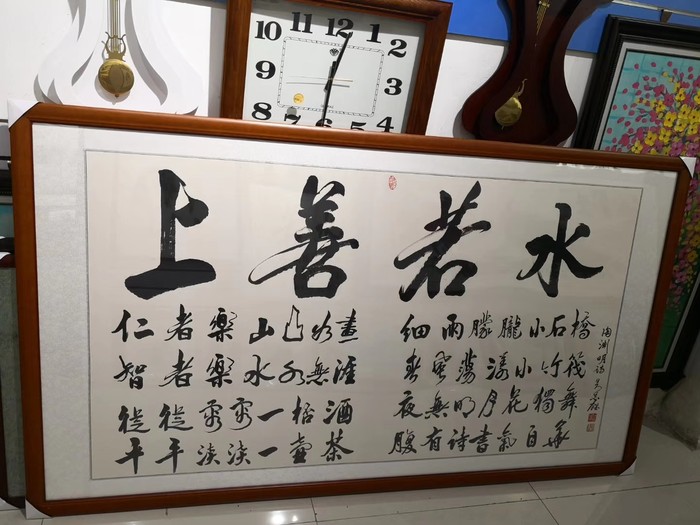 11 12 1
10 2
9 3
8 4
上善若水
仁者樂山山水畫
智者樂水水無涯
從從容容一杯酒
平平淡淡一壺茶
細雨朦朧小石橋
春風蕩漾小竹筏
夜無明月花獨舞
腹有詩書氣自華
陶淵明詩